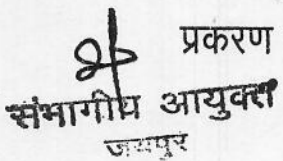 प्रकरण
संभागीय आयुक्त
जयपुर